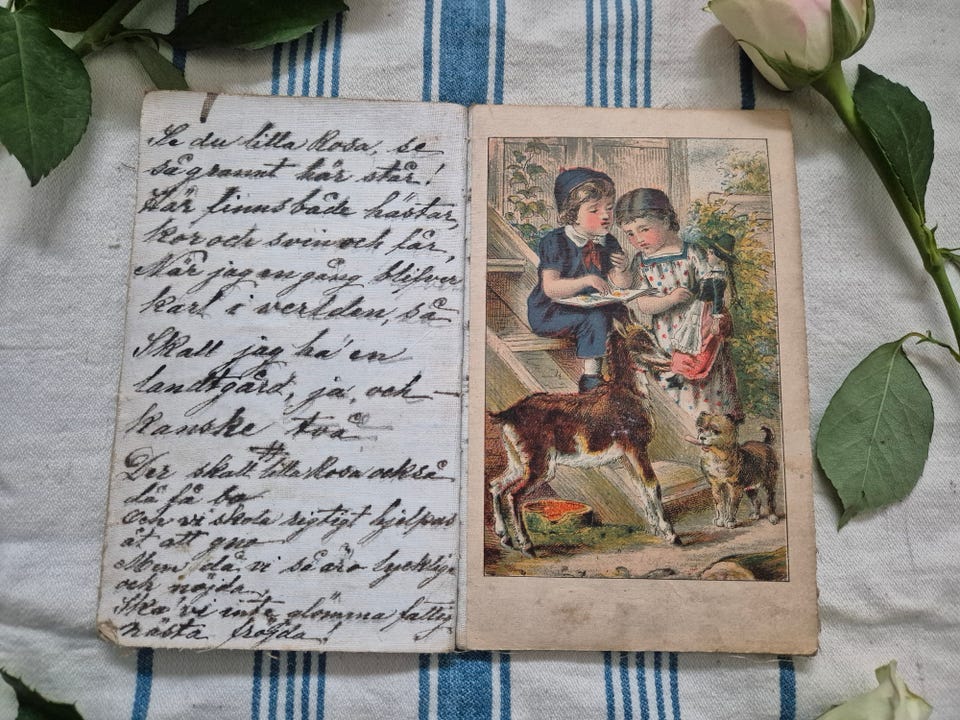 Se du lilla Rosa, se
så grannt här står!
Här finns både hästar,
kor och svin och får,
När jag en gång blifver
karl i verlden, så
Skall jag ha' en
landtgård, ja, och
kanske två
Der skall lilla Rosa också
då få bo
Och vi skola rigtigt hjelpas
åt att gno
Men då vi så äro lycklige
och nöjda,
Ska' vi inte glömma fattig
nästa fröjda!